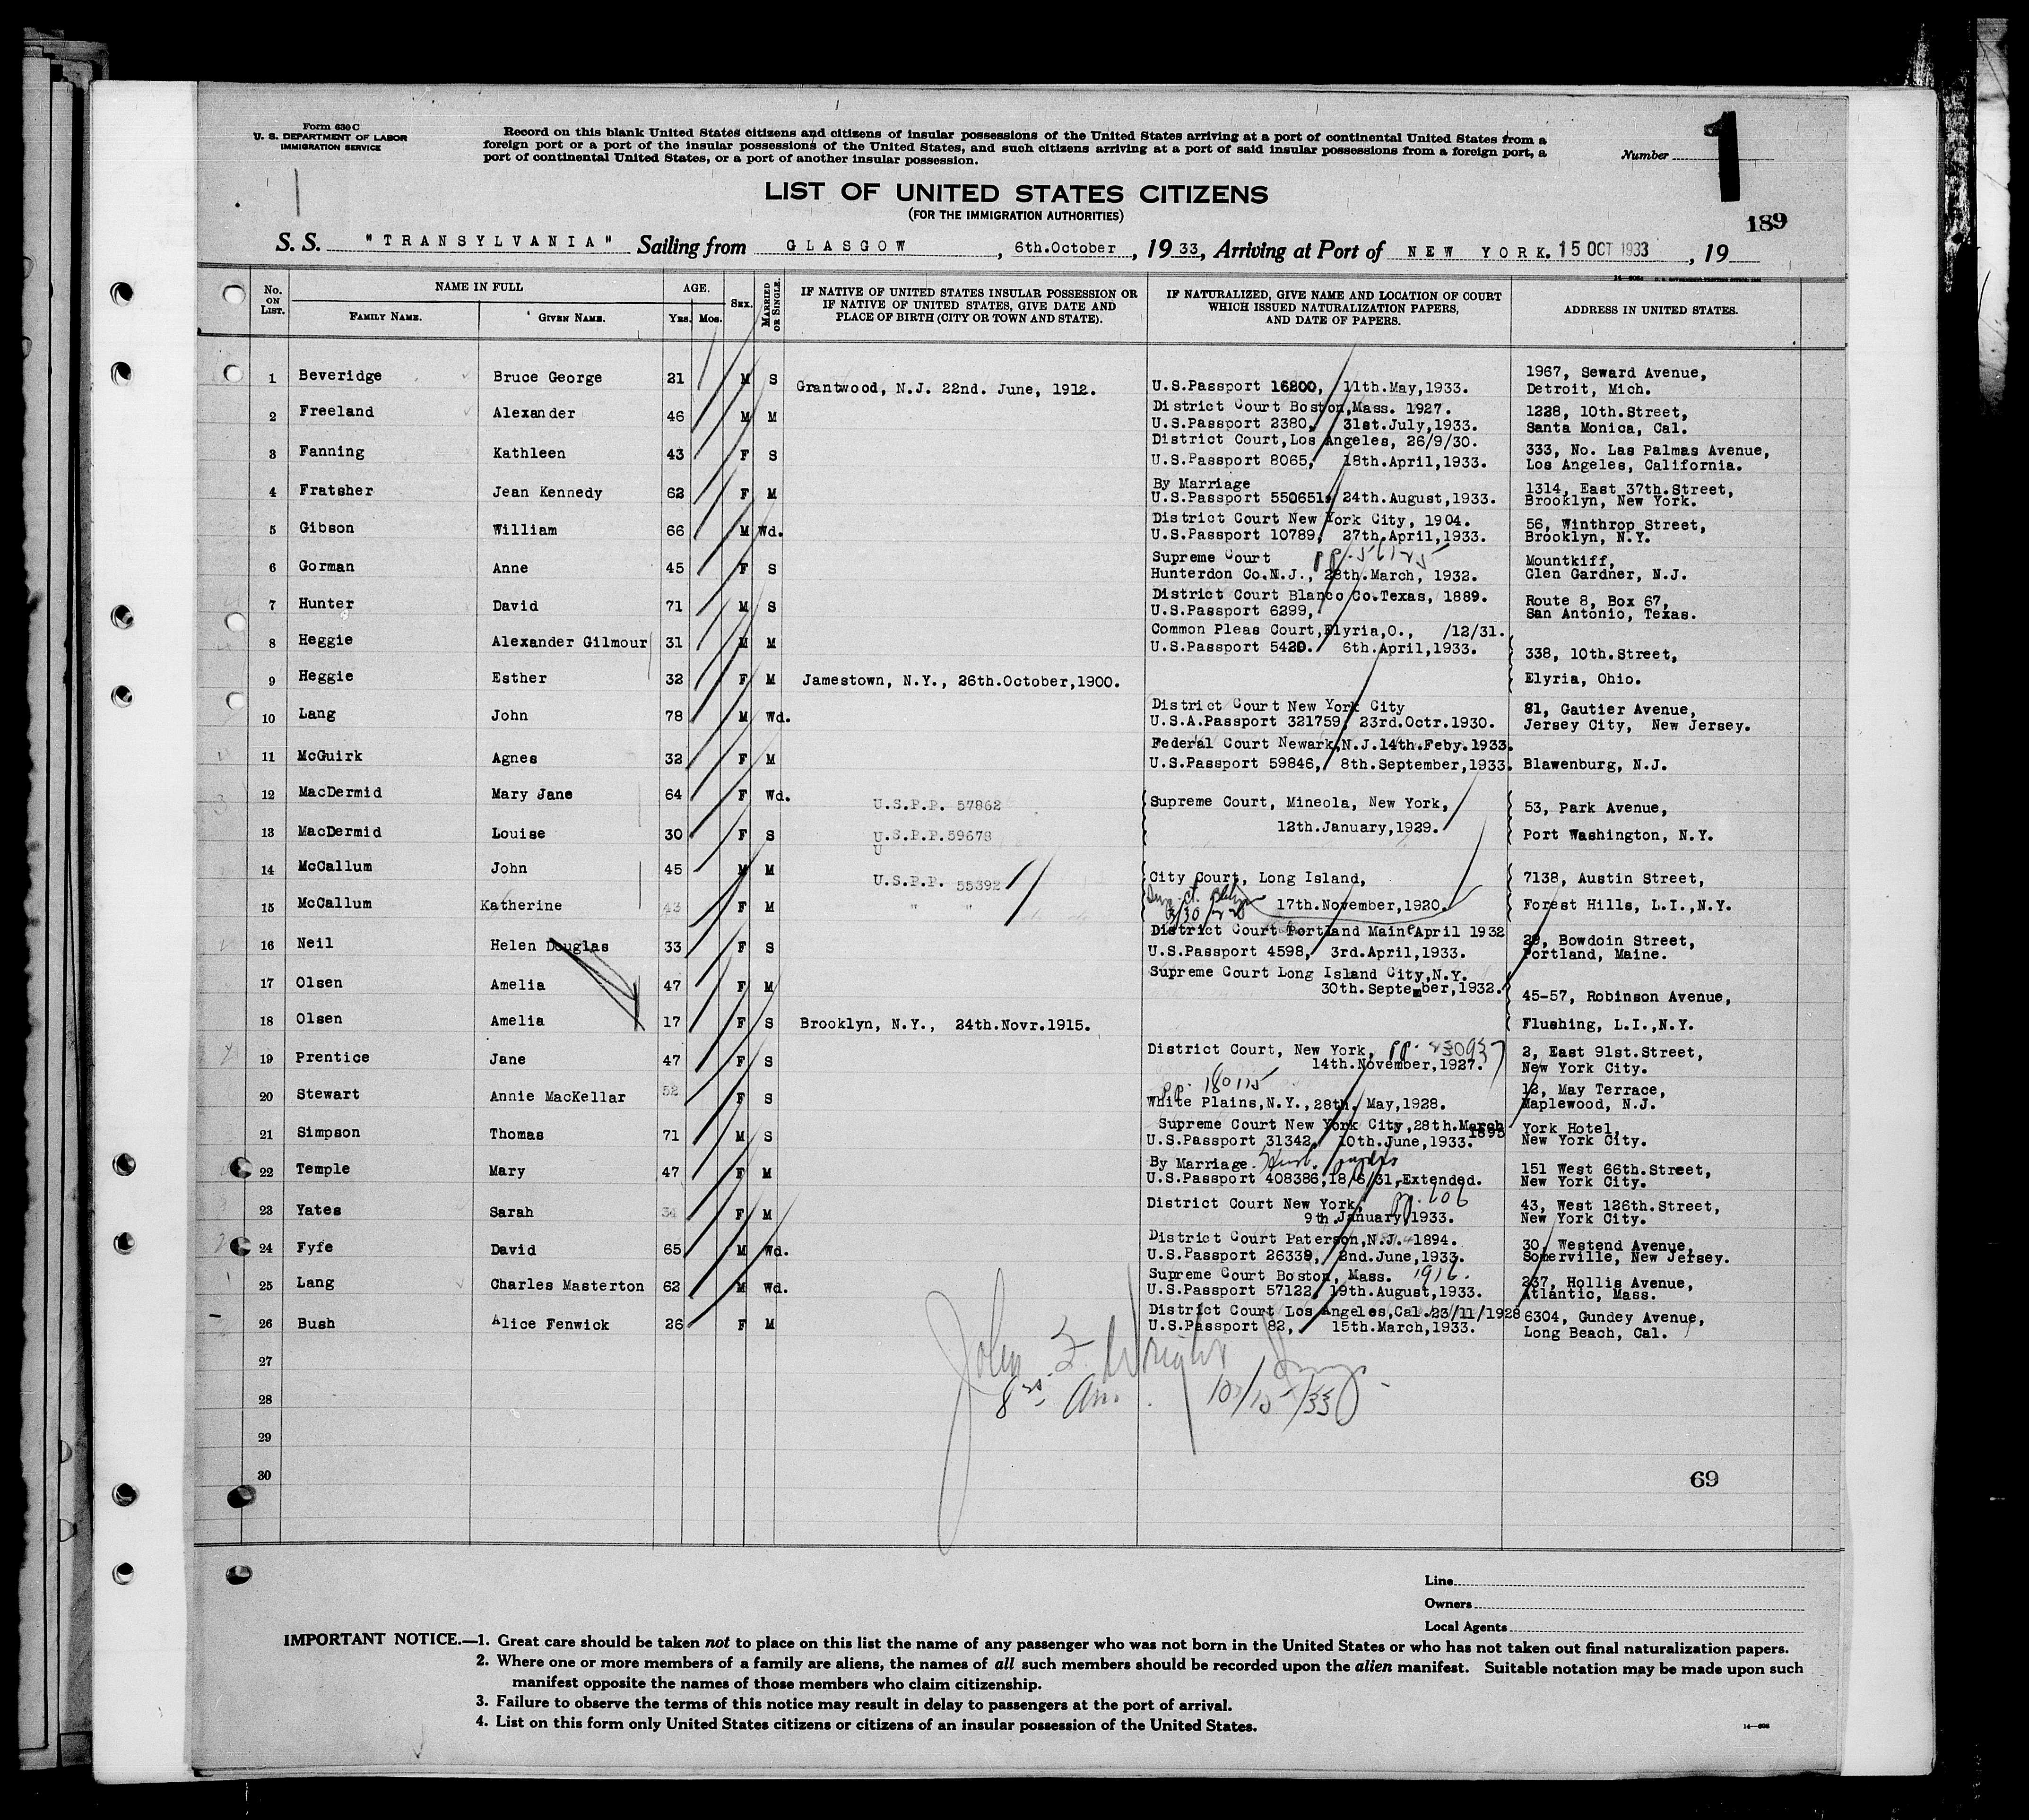 Form 630 C
U. S. DEPARTMENT OF LABOR
IMMIGRATION SERVICE
Record on this blank United States citizens and citizens of insular possessions of the United States arriving at a port of continental United States from a
foreign port or a port of the insular possessions of the United States, and such citizens arriving at a port of said insular possessions from a foreign port, a
port of continental United States, or a port of another insular possession.
Number 1
LIST OF UNITED STATES CITIZENS
(FOR THE IMMIGRATION AUTHORITIES)
189
S. S. "TRANSYLVANIA" Sailing from GLASGOW, 6th.October, 1933, Arriving at Port of NEW YORK. 15 OCT 1933, 19
No. ON LIST. NAME IN FULL AGE. SEX. MARRIED OR SINGLE. IF NATIVE OF UNITED STATES INSULAR POSSESSION OR IF NATIVE OF UNITED STATES, GIVE DATE AND PLACE OF BIRTH (CITY OR TOWN AND STATE). IF NATURALIZED, GIVE NAME AND LOCATION OF COURT WHICH ISSUED NATURALIZATION PAPERS, AND DATE OF PAPERS. ADDRESS IN UNITED STATES.
FAMILY NAME. GIVEN NAME. YRS. MOS.
1 Beveridge Bruce George 21 M S Grantwood, N.J. 22nd. June, 1912. U.S.Passport 16200, 11th.May,1933. 1967, Seward Avenue,
Detroit, Mich.
2 Freeland Alexander 46 M M District Court Boston,Mass. 1927. 1228, 10th.Street,
U.S.Passport 2380, 31st.July,1933. Santa Monica, Cal.
3 Fanning Kathleen 43 F S District Court,Los Angeles, 26/9/30. 333, No. Las Palmas Avenue,
U.S.Passport 8065, 18th.April,1933. Los Angeles, California.
4 Fratsher Jean Kennedy 62 F M By Marriage 1314, East 37th.Street,
U.S.Passport 550651, 24th.August,1933. Brooklyn, New York.
5 Gibson William 66 M Wd. District Court New York City, 1904. 56, Winthrop Street,
U.S.Passport 10789, 27th.April,1933. Brooklyn, N.Y.
6 Gorman Anne 45 F S Supreme Court pp. 56125 Mountkiff,
Hunterdon Co.N.J., 28th.March, 1932. Glen Gardner, N.J.
7 Hunter David 71 M S District Court Blanco Co.Texas, 1889. Route 8, Box 67,
U.S.Passport 6299, San Antonio, Texas.
8 Heggie Alexander Gilmour 31 M M Common Pleas Court,Elyria,O., /12/31.
U.S.Passport 5420. 6th.April,1933. 338, 10th.Street,
9 Heggie Esther 32 F M Jamestown, N.Y., 26th.October,1900. Elyria, Ohio.
10 Lang John 78 M Wd. District Court New York City 81, Gautier Avenue,
U.S.A.Passport 321759, 23rd.Octr.1930. Jersey City, New Jersey.
11 McGuirk Agnes 32 F M Federal Court Newark,N.J.14th.Feby.1933.
U.S.Passport 59846, 8th.September,1933. Blawenburg, N.J.
12 MacDermid Mary Jane 64 F Wd. U.S.P.P. 57862 Supreme Court, Mineola, New York, 53, Park Avenue,
13 MacDermid Louise 30 F S U.S.P.P.59678 12th.January,1929. Port Washington, N.Y.
U
14 McCallum John 45 M M U.S.P.P. 55392 City Court, Long Island, 7138, Austin Street,
15 McCallum Katherine 43 F M " " 17th.November,1920. Forest Hills, L.I.,N.Y.
16 Neil Helen Douglas 33 F S District Court Portland Maine April 1932 29, Bowdoin Street,
U.S.Passport 4598, 3rd.April,1933. Portland, Maine.
17 Olsen Amelia 47 F M Supreme Court Long Island City,N.Y.
30th.September,1932. 45-57, Robinson Avenue,
18 Olsen Amelia 17 F S Brooklyn, N.Y., 24th.Novr.1915. Flushing, L.I.,N.Y.
19 Prentice Jane 47 F S District Court, New York, pp. 2, East 91st.Street,
14th.November,1927. New York City.
20 Stewart Annie MacKellar 52 F S pp. 180115 12, May Terrace,
White Plains,N.Y.,28th. May,1928. Maplewood, N.J.
21 Simpson Thomas 71 M S Supreme Court New York City,28th.March 1895 York Hotel,
U.S.Passport 31342, 10th.June,1933. New York City.
22 Temple Mary 47 F M By Marriage. Husb. papers 151 West 66th.Street,
U.S.Passport 408386,18/6/31,Extended. New York City.
23 Yates Sarah 34 F M District Court New York, pp. 606 43, West 126th.Street,
9th.January,1933. New York City.
24 Fyfe David 65 M Wd. District Court Paterson,N.J. 1894. 30, Westend Avenue,
U.S.Passport 26339, 2nd.June,1933. Somerville, New Jersey.
25 Lang Charles Masterton 62 M Wd. Supreme Court Boston, Mass. 1916. 237, Hollis Avenue,
U.S.Passport 57122, 19th.August,1933. Atlantic, Mass.
26 Bush Alice Fenwick 26 F M District Court Los Angeles,Cal.23/11/1928 6304, Gundey Avenue,
U.S.Passport 82, 15th.March,1933. Long Beach, Cal.
27
John Wright Insp.
28
10/15/33
29
30
69
Line
Owners
Local Agents
IMPORTANT NOTICE.—1. Great care should be taken not to place on this list the name of any passenger who was not born in the United States or who has not taken out final naturalization papers.
2. Where one or more members of a family are aliens, the names of all such members should be recorded upon the alien manifest. Suitable notation may be made upon such
manifest opposite the names of those members who claim citizenship.
3. Failure to observe the terms of this notice may result in delay to passengers at the port of arrival.
4. List on this form only United States citizens or citizens of an insular possession of the United States.